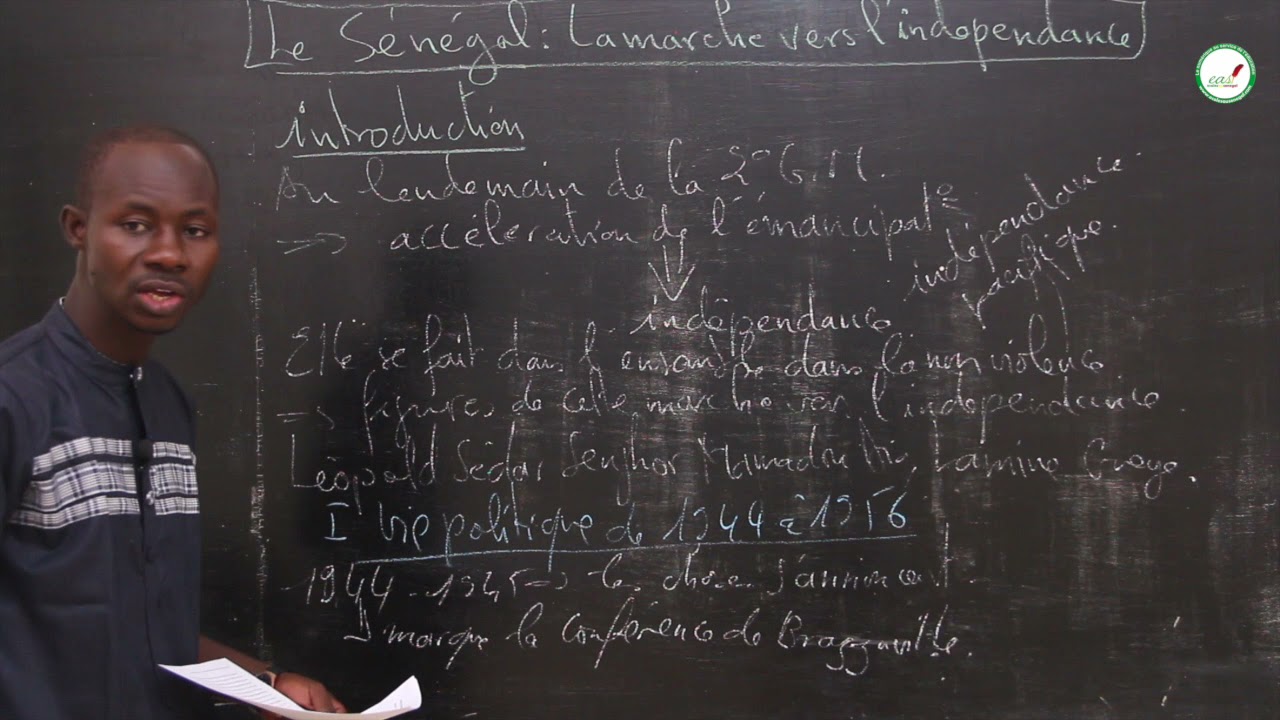 Le Sénégal : La marche vers l'indépendance
introduction
Au lendemain de la 2° G.M.
=> accéleration de l'émancipat°
indépendance
pacifique.
indépendance
Elle se fait dans l'ensemble dans la non violence
=> figures de cette marche vers l'indépendance.
Léopold Sédar Senghor Mamadou Dia, Lamine Gueye.
I Vie politique de 1944 à 1956
- 1944 - 1945 => les choses s'annoncent
marque la Conférence de Brazzaville.
eas